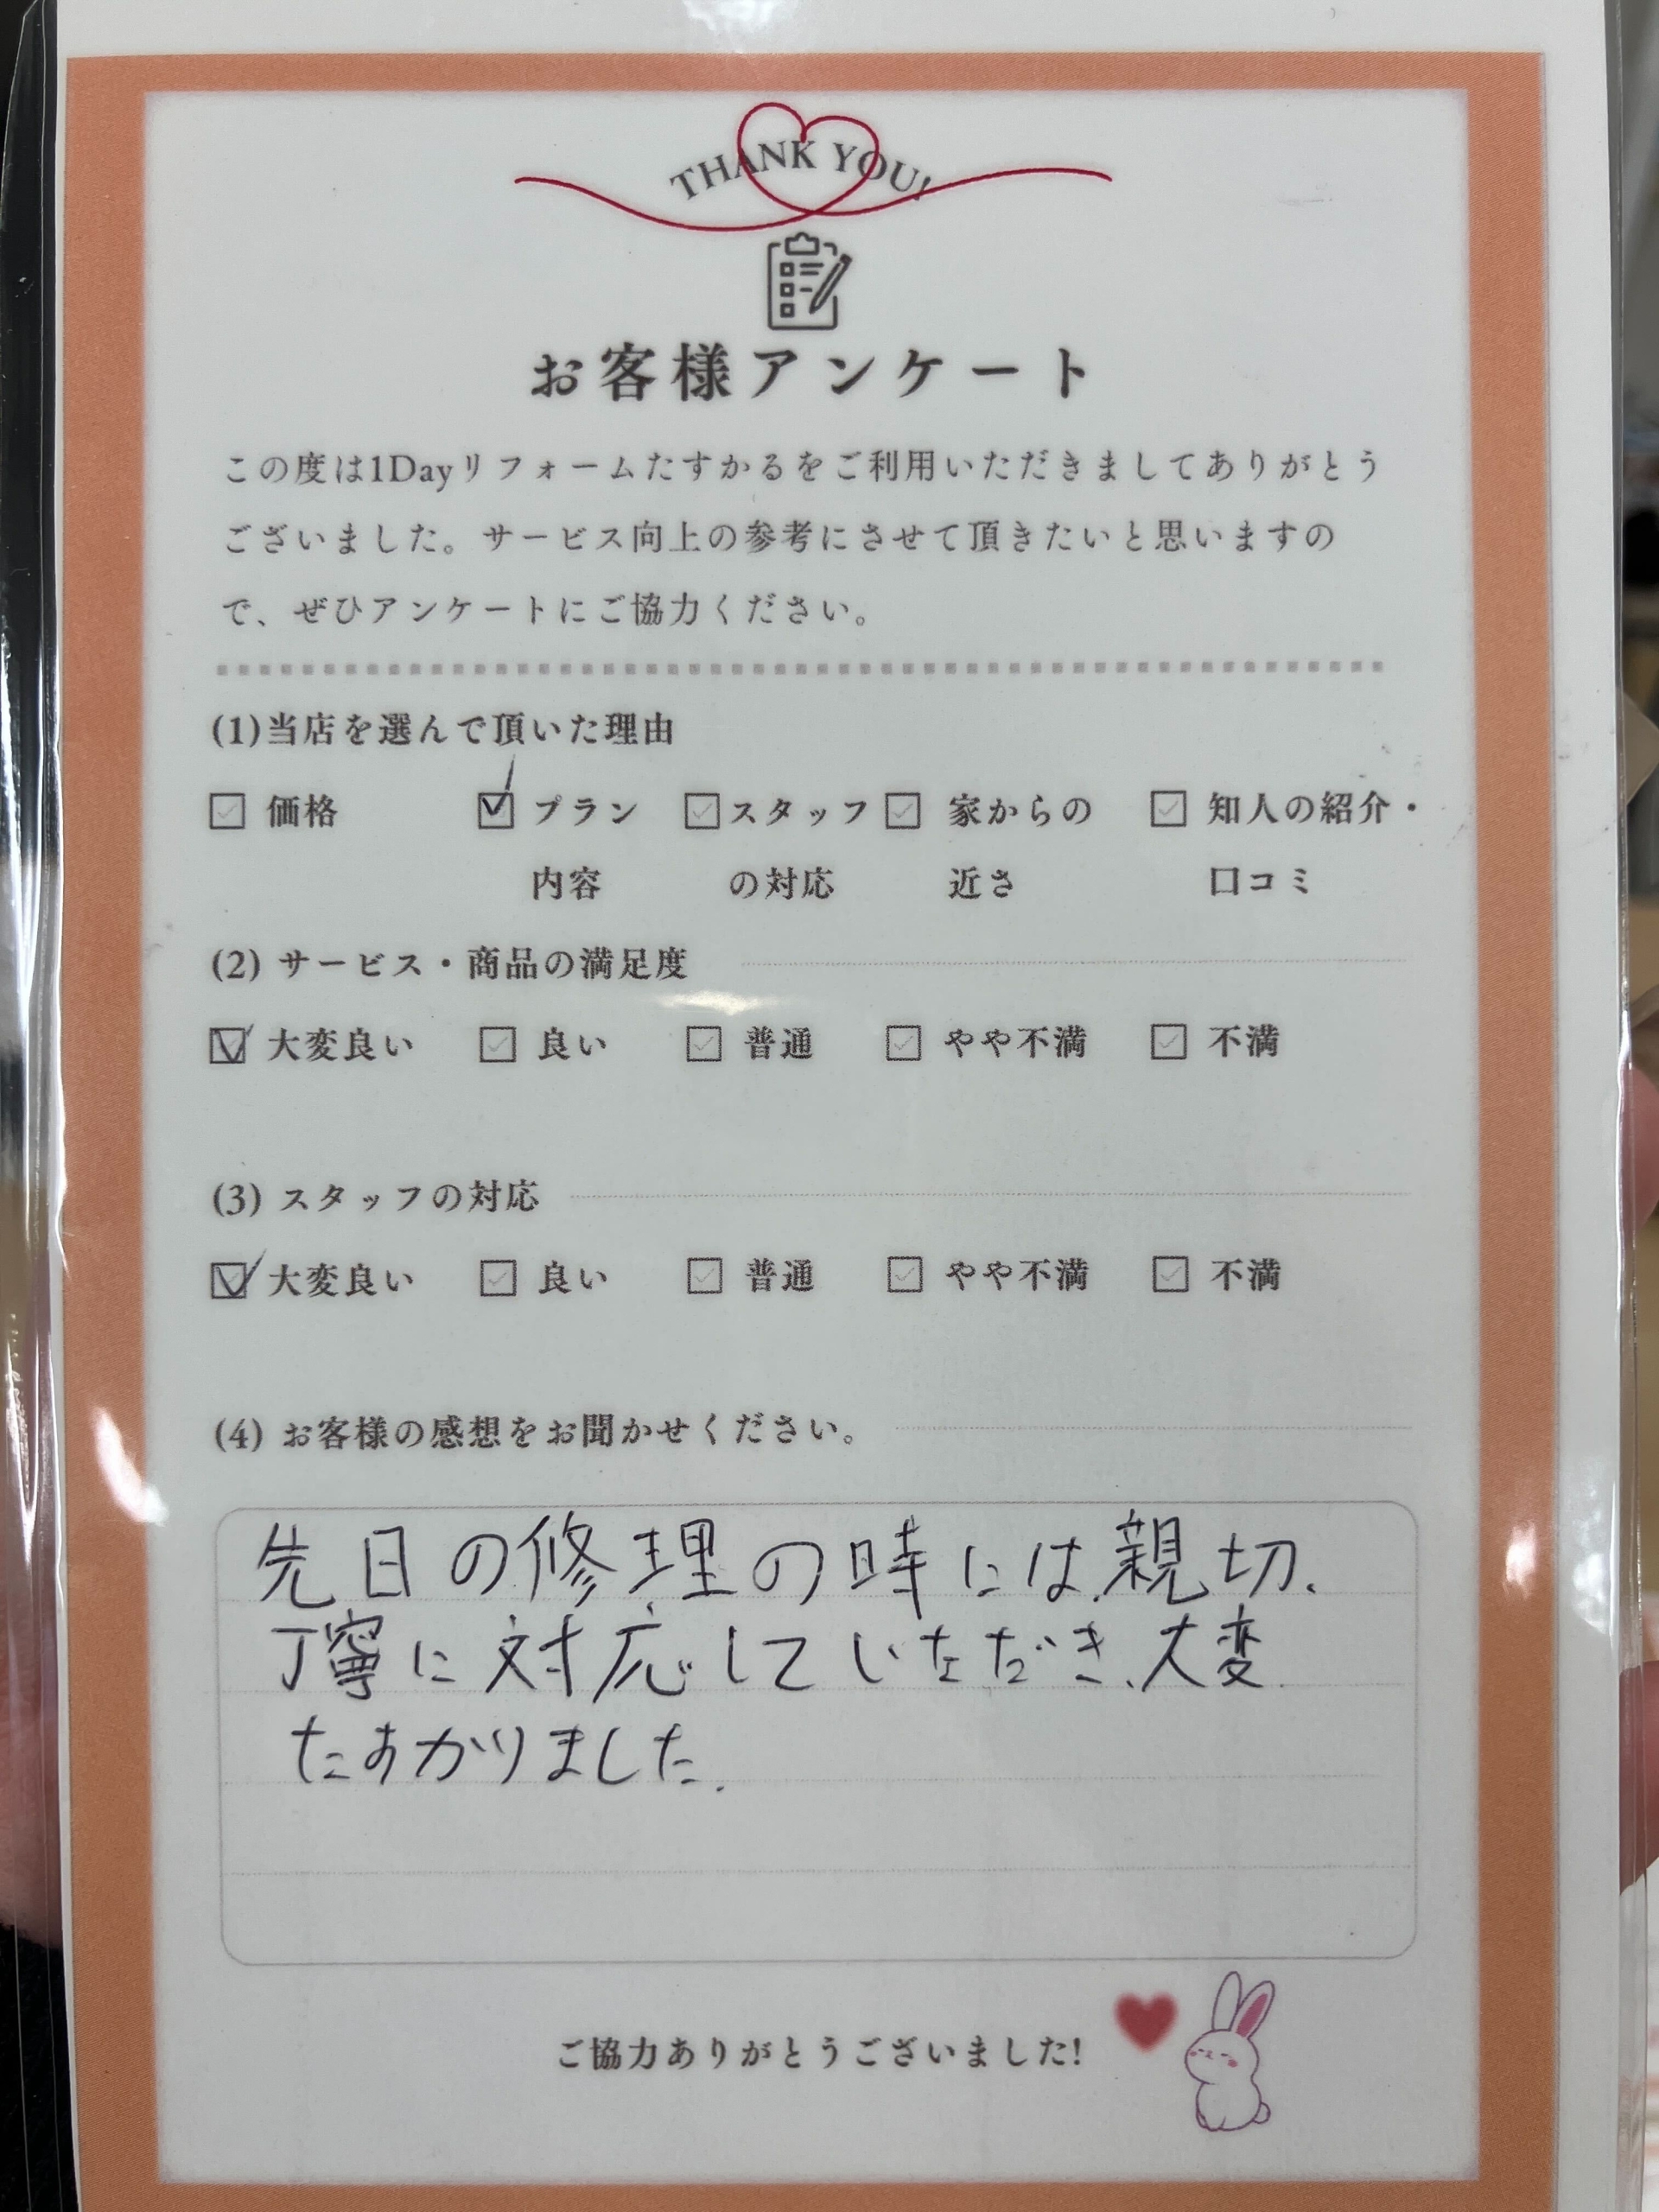 THANK YOU!
お客様アンケート
この度は1Dayリフォームたすかるをご利用いただきましてありがとう
ございました。サービス向上の参考にさせて頂きたいと思いますの
で、ぜひアンケートにご協力ください。
(1)当店を選んで頂いた理由
価格 プラン スタッフ 家からの 知人の紹介・
内容 の対応 近さ 口コミ
(2) サービス・商品の満足度
大変良い 良い 普通 やや不満 不満
(3) スタッフの対応
大変良い 良い 普通 やや不満 不満
(4) お客様の感想をお聞かせください。
先日の修理の時には親切、
丁寧に対応していただき、大変
たすかりました。
ご協力ありがとうございました!